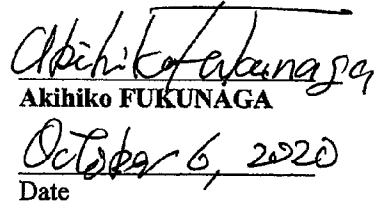 Akihiko Fukunaga
Akihiko FUKUNAGA
October 6, 2020
Date